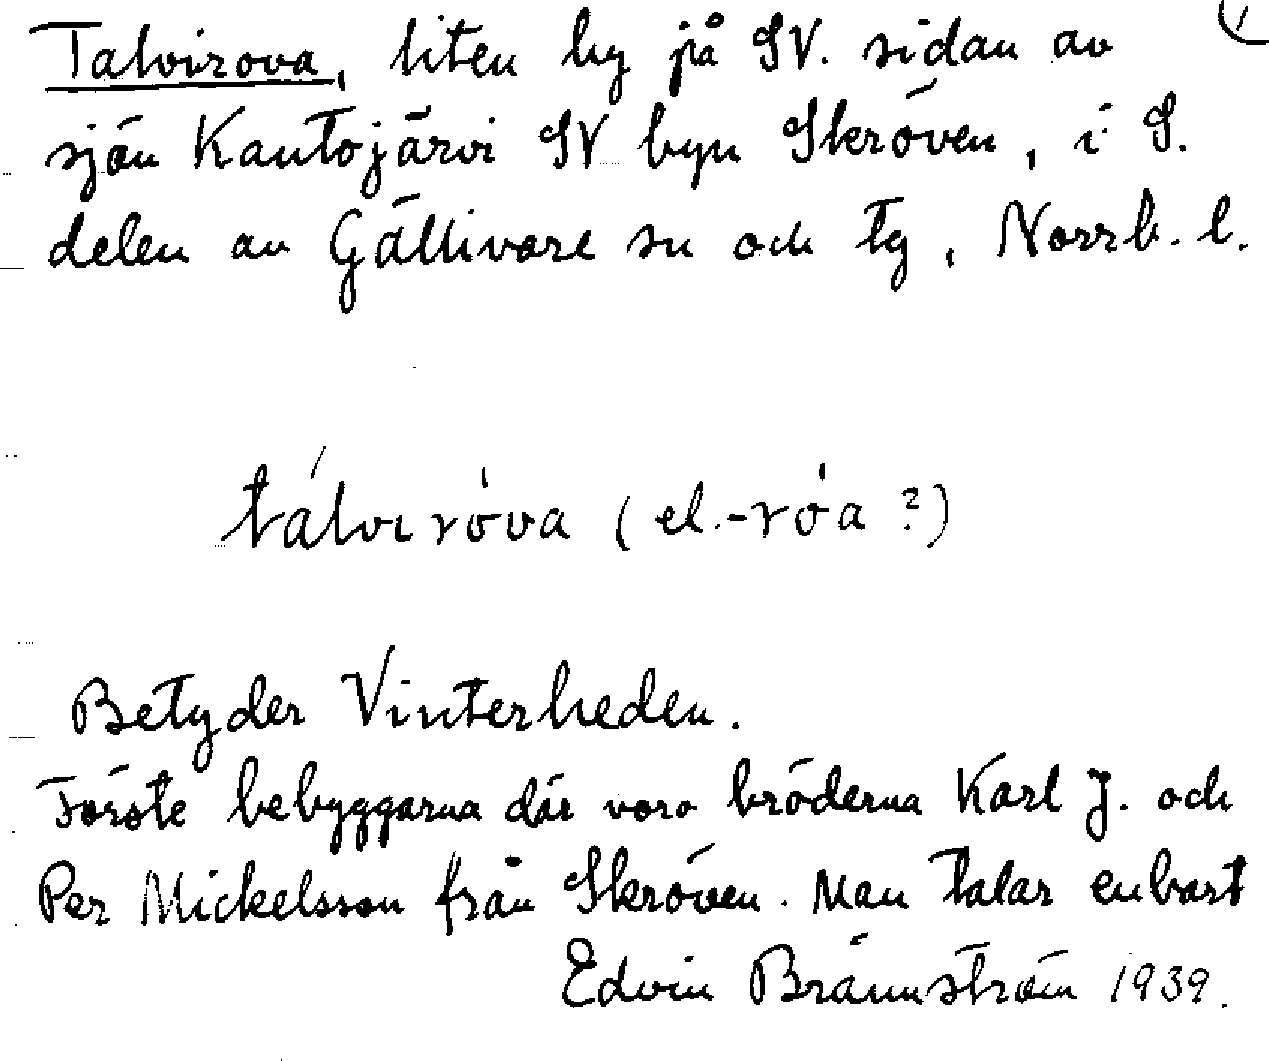 Talvirova, liten by på SV. sidan av
sjön Kantojärvi SV byn Skröven, i S.
delen av Gällivare sn och tg, Norrb. l.
tálvi rȯ́va (el. -rȯ́a ?)
Betyder Vinterheden.
Förste bebyggarna där voro bröderna Karl J. och
Per Mickelsson från Skröven. Man talar enbart
Edvin Brännström 1939.